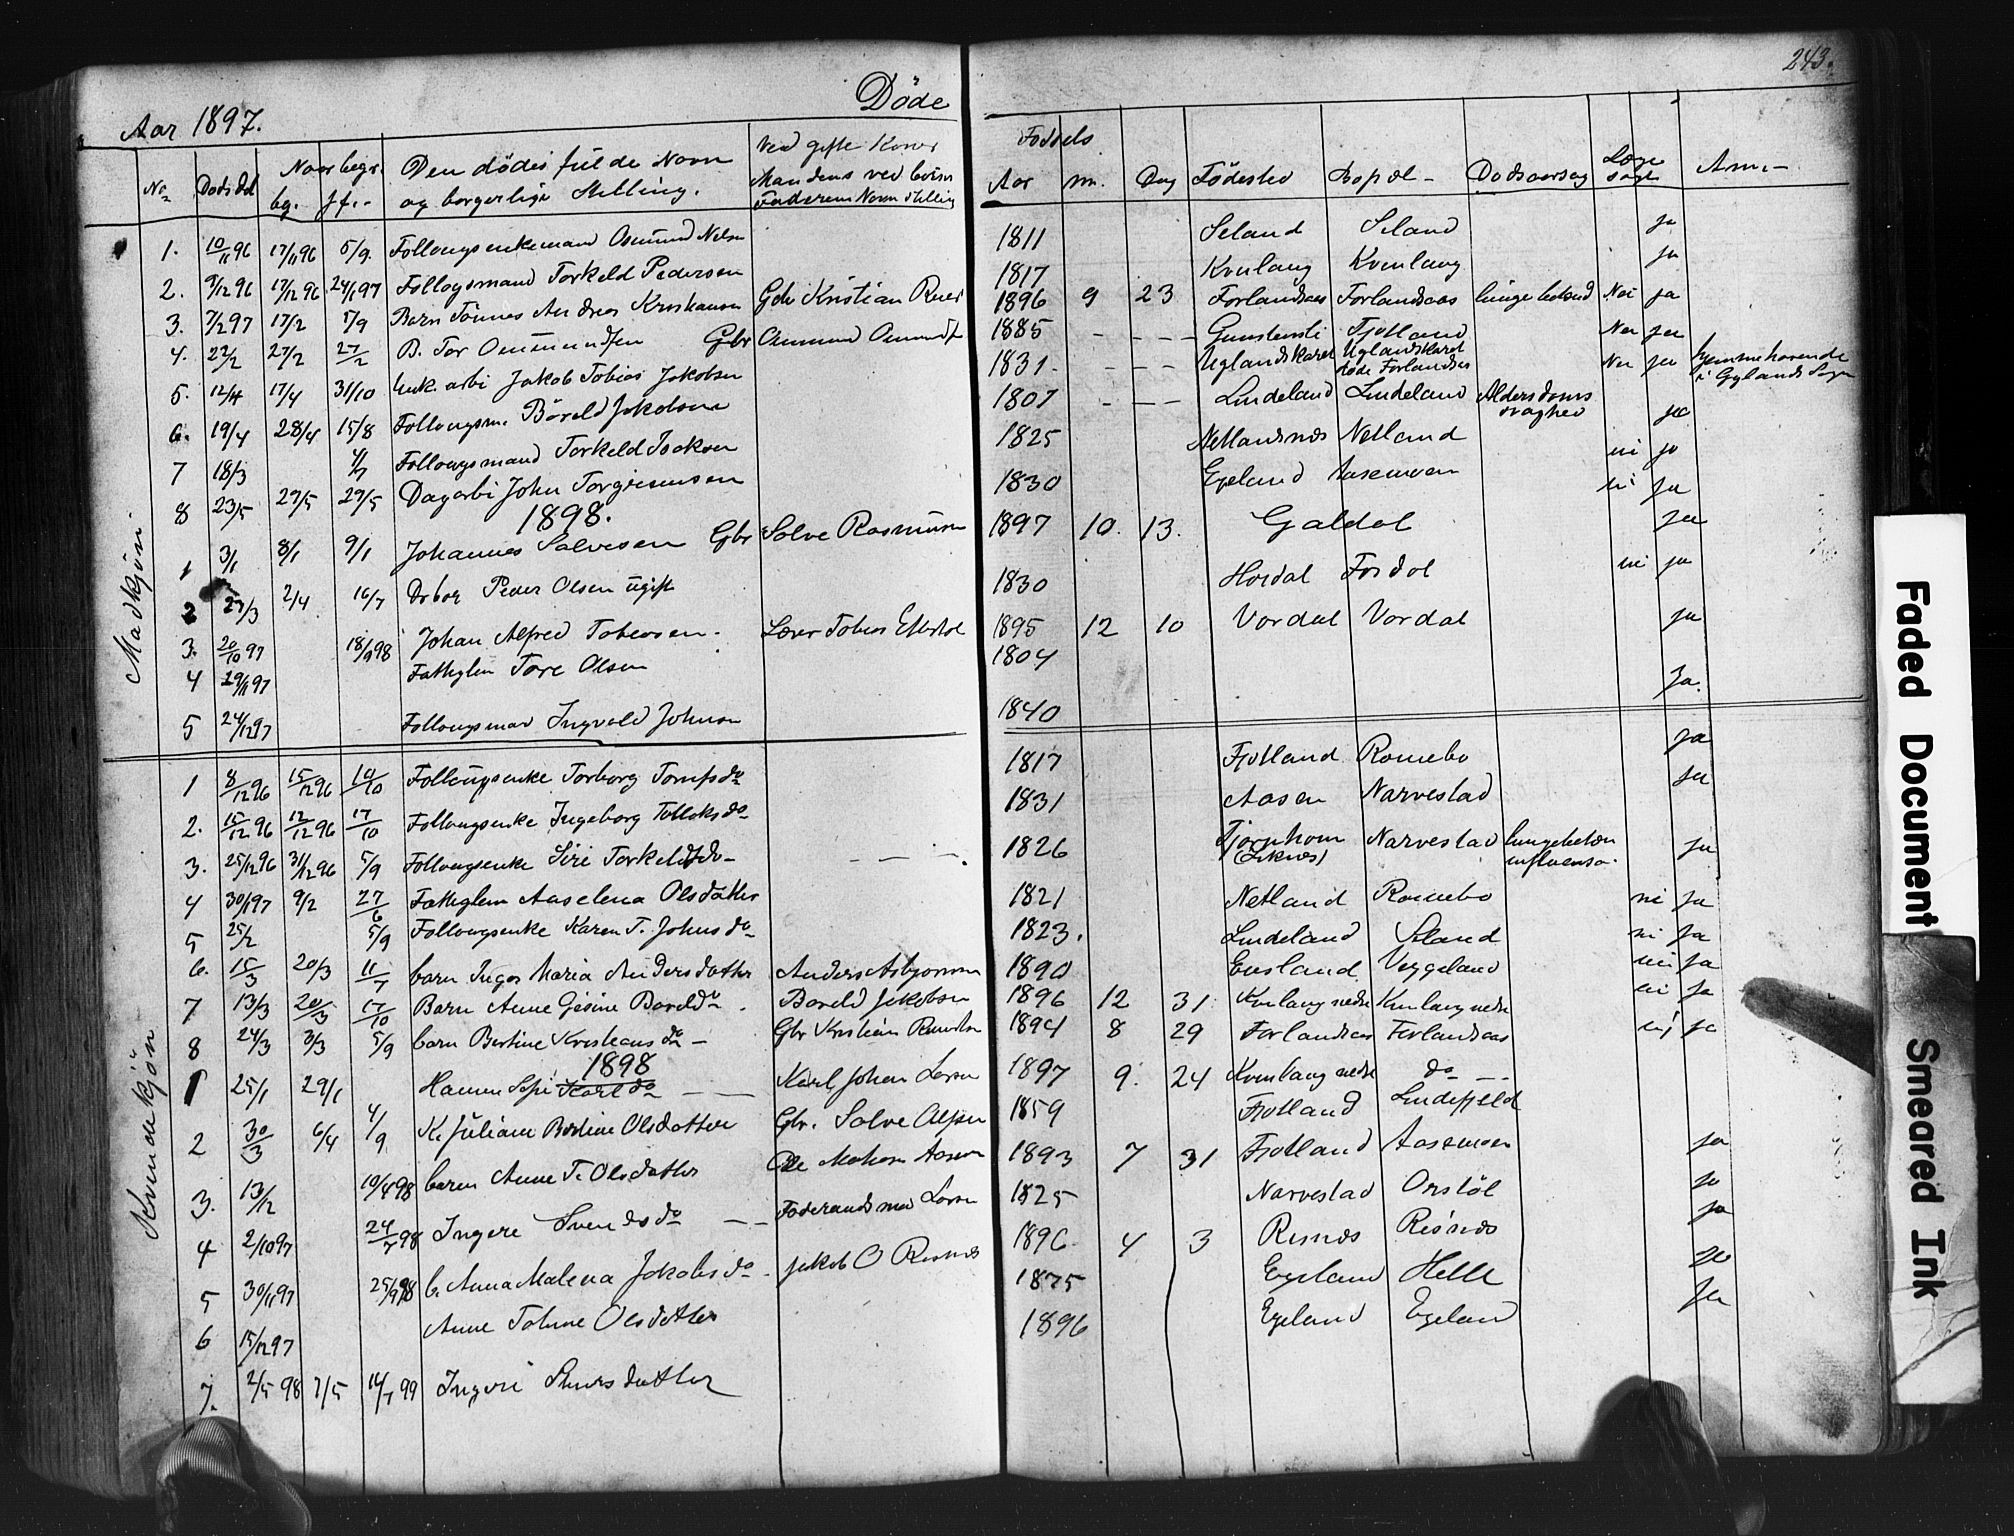 243.
Aar 1897. Døde
No Dødsdal Naar begr. bg. jf. Den dødes fulde Navn og borgerlige Stilling. Ved gifte Koner Mandens ved børn Faderens Navn Stilling Fødsels Aar m. Dag Fødested Bopæl Dødsaarsag Læge søgt Anm.
Madkjön
1. 10/11 96 17/11 96 5/9. Follougsenkemand Osmund Nelsen 1811 Seland Seland ja
2. 9/12 96 17/12 96 24/1 97 Follogsmand Torkeld Pedersen 1817 Kvenlaug Kvenlaug ja
3. 7/2 97 17/2 5/9 Barn Tönnes Andreas Kristiansen Gbr Kristian 1896 9 23 Forlandsaas Forlandsaas Nei ja
4. 22/2 27/2 27/2 B. Tor Osmundsen Gbr Osmund 1885 - - - Gunstensli Fjotland Nei ja
5. 12/4 17/4 31/10 Enk. arbi Jakob Tobias Jakobsen 1831. - - - Uglandskaret Uglandskaret døde Forlandsaas Nei ja hjemmehørende i Gylands Sogn
6. 19/4 28/4 15/8 Follougsm. Böreld Jakobsen 1807 - - - Lindeland Lindeland Alderdoms svaghed ja
7 18/3 4/7 Follougsmand Torkeld Isaksen 1825 Netlandsnes Netland ni ja
8 23/5 29/5 29/5 Dagarbi John Torgrimsen 1830 Egeland Aasemoen ni ja
1898.
1 3/1 8/1 9/1 Johannes Salvesen Gbr Salve Rasmusen 1897 10. 13. Galdal ja
2 27/3 2/4 16/7 Peder Olsen ugift 1830 Hordal Fordal ni ja
3. 20/10 97 18/1 98 Johan Alfred Tobiasen. Lærer Tobias 1895 12 10 Vordal Vordal ja
4 29/11 97 Fattiglem Tore Olsen 1804 Ja.
5 24/12 97 Follougsman Ingvald Johnsen 1840
Kvindekjön
1 8/12 96 15/12 96 10/10 Follougsenke Torborg 1817 Fjotland Romebo ja
2. 15/12 96 17/12 96 17/10 Follougsenke Ingeborg Tolleksda 1831 Aasen Narvestad ja
3. 25/12 96 31/12 96 5/9 Follougsenke Siri Torkeldsda - - - . 1826 Tjornhom Narvestad influensa. ja
4 30/1 97 9/2 27/6 Fattiglem Aaselena Olsdatter 1821 Netland Romebo ni ja
5 25/2 5/9 Follougsenke Karen T. Johnsda 1823. Lindeland Seland ni ja
6. 15/3 20/3 11/7 barn Inger Maria Andersdatter Anders Asbjornsen 1890 Eusland Veggeland nei ja
7 13/3 20/3 17/10 Barn Anne Gesine Bareldda Bareld Jakobsen 1896 12 31 Kvenlaug nedre Kvenlaug nedre ni ja
8 24/3 3/3 5/9 barn Bertine Kristiansda - Gbr Kristian 1894 8 29 Forlandsaas Forlandsaas nij ja
1898
1 25/1 29/1 Karlda - - Karl Johan Larsen 1897 9. 24 Kvenlaug nedre do - -
2 30/3 6/4 4/9 K. Juliane Bertine Olsdatter Gbr. Salve 1859 Fjotland Lindefjeld
3. 13/12 10/4 98 barn Anne T. Olsdatter Ole 1893 7 31 Fjotland Aasemoen ja
4 2/10 97 24/7 98 Ingere Svendsda - - Føderaadsman Larsen 1825 Narvestad ja
5 30/11 97 25/9 98 b. Anna Malena Jakobsda - Jakob O Risnes 1896. 4 3 Risnes Risnes ja
6 15/12 97 Anne Tomine Olsdatter 1875 Egeland Helle ja
7. 2/5 98 7/5 14/7 99 Ingeri 1896 Egeland Egeland ja
Faded Document
Smeared Ink